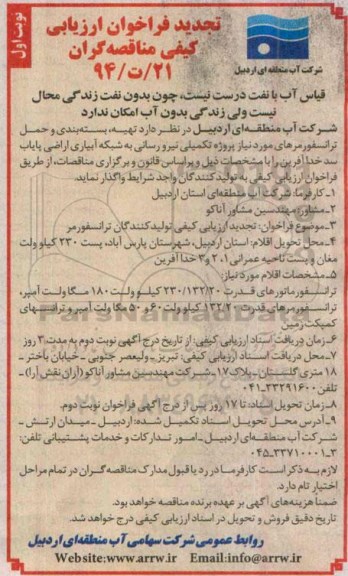 نوبت اول
تجدید فراخوان ارزیابی
کیفی مناقصه‌گران
۹۴/ت/۲۱
شرکت آب منطقه ای اردبیل
قیاس آب با نفت درست نیست، چون بدون نفت زندگی محال
نیست ولی زندگی بدون آب امکان ندارد
شرکت آب منطقه‌ای اردبیل در نظر دارد تهیه، بسته‌بندی و حمل
ترانسفورمرهای مورد نیاز پروژه تکمیلی نیرو رسانی به شبکه آبیاری اراضی پایاب
سد خداآفرین را با مشخصات ذیل و براساس قانون و برگزاری مناقصات، از طریق
فراخوان ارزیابی کیفی به تولیدکنندگان واجد شرایط واگذار نماید.
۱ـ کارفرما: شرکت آب منطقه‌ای استان اردبیل
۲ـ مشاور: مهندسین مشاور آناکو
۳ـ موضوع فراخوان: تجدید ارزیابی کیفی تولیدکنندگان ترانسفورمر
۴ـ محل تحویل اقلام: استان اردبیل، شهرستان پارس آباد، پست ۲۳۰ کیلو ولت
مغان و پست ناحیه عمرانی ۱، ۲ و ۳ خدا آفرین
۵ـ مشخصات اقلام مورد نیاز:
ترانسفورماتورهای قدرت ۲۳۰/۱۳۲/۲۰ کیلو ولت ۱۸۰ مگا ولت آمپر،
ترانسفورمرهای قدرت ۱۳۲/۲۰ کیلو ولت ۶۰ و ۵۰ مگا ولت آمپر و ترانسهای
کمپکت زمین
۶ـ زمان دریافت اسناد ارزیابی کیفی: از تاریخ درج آگهی نوبت دوم به مدت ۳ روز
۷ـ محل دریافت اسناد ارزیابی کیفی: تبریز ـ ولیعصر جنوبی ـ خیابان باختر ـ
۱۸ متری گلستان ـ پلاک ۱۷ ـ شرکت مهندسین مشاور آناکو (آران نقش آرا) ـ
تلفن ۳۳۲۹۱۶۰۰-۰۴۱
۸ـ زمان تحویل اسناد: تا ۱۷ روز پس از درج آگهی فراخوان نوبت دوم.
۹ـ آدرس محل تحویل اسناد تکمیل شده: اردبیل ـ میدان ارتش ـ
شرکت آب منطقه‌ای اردبیل ـ امور تدارکات و خدمات پشتیبانی تلفن:
۳ـ۳۳۷۱۰۰۰۱-۰۴۵
لازم به ذکر است کارفرما در رد یا قبول مدارک مناقصه‌گران در تمام مراحل
اختیار تام دارد.
ضمناً هزینه‌های آگهی بر عهده برنده مناقصه خواهد بود.
تاریخ دقیق فروش و تحویل در اسناد ارزیابی کیفی درج خواهد شد.
روابط عمومی شرکت سهامی آب منطقه‌ای اردبیل
Website:www.arrw.ir Email:info@arrw.ir